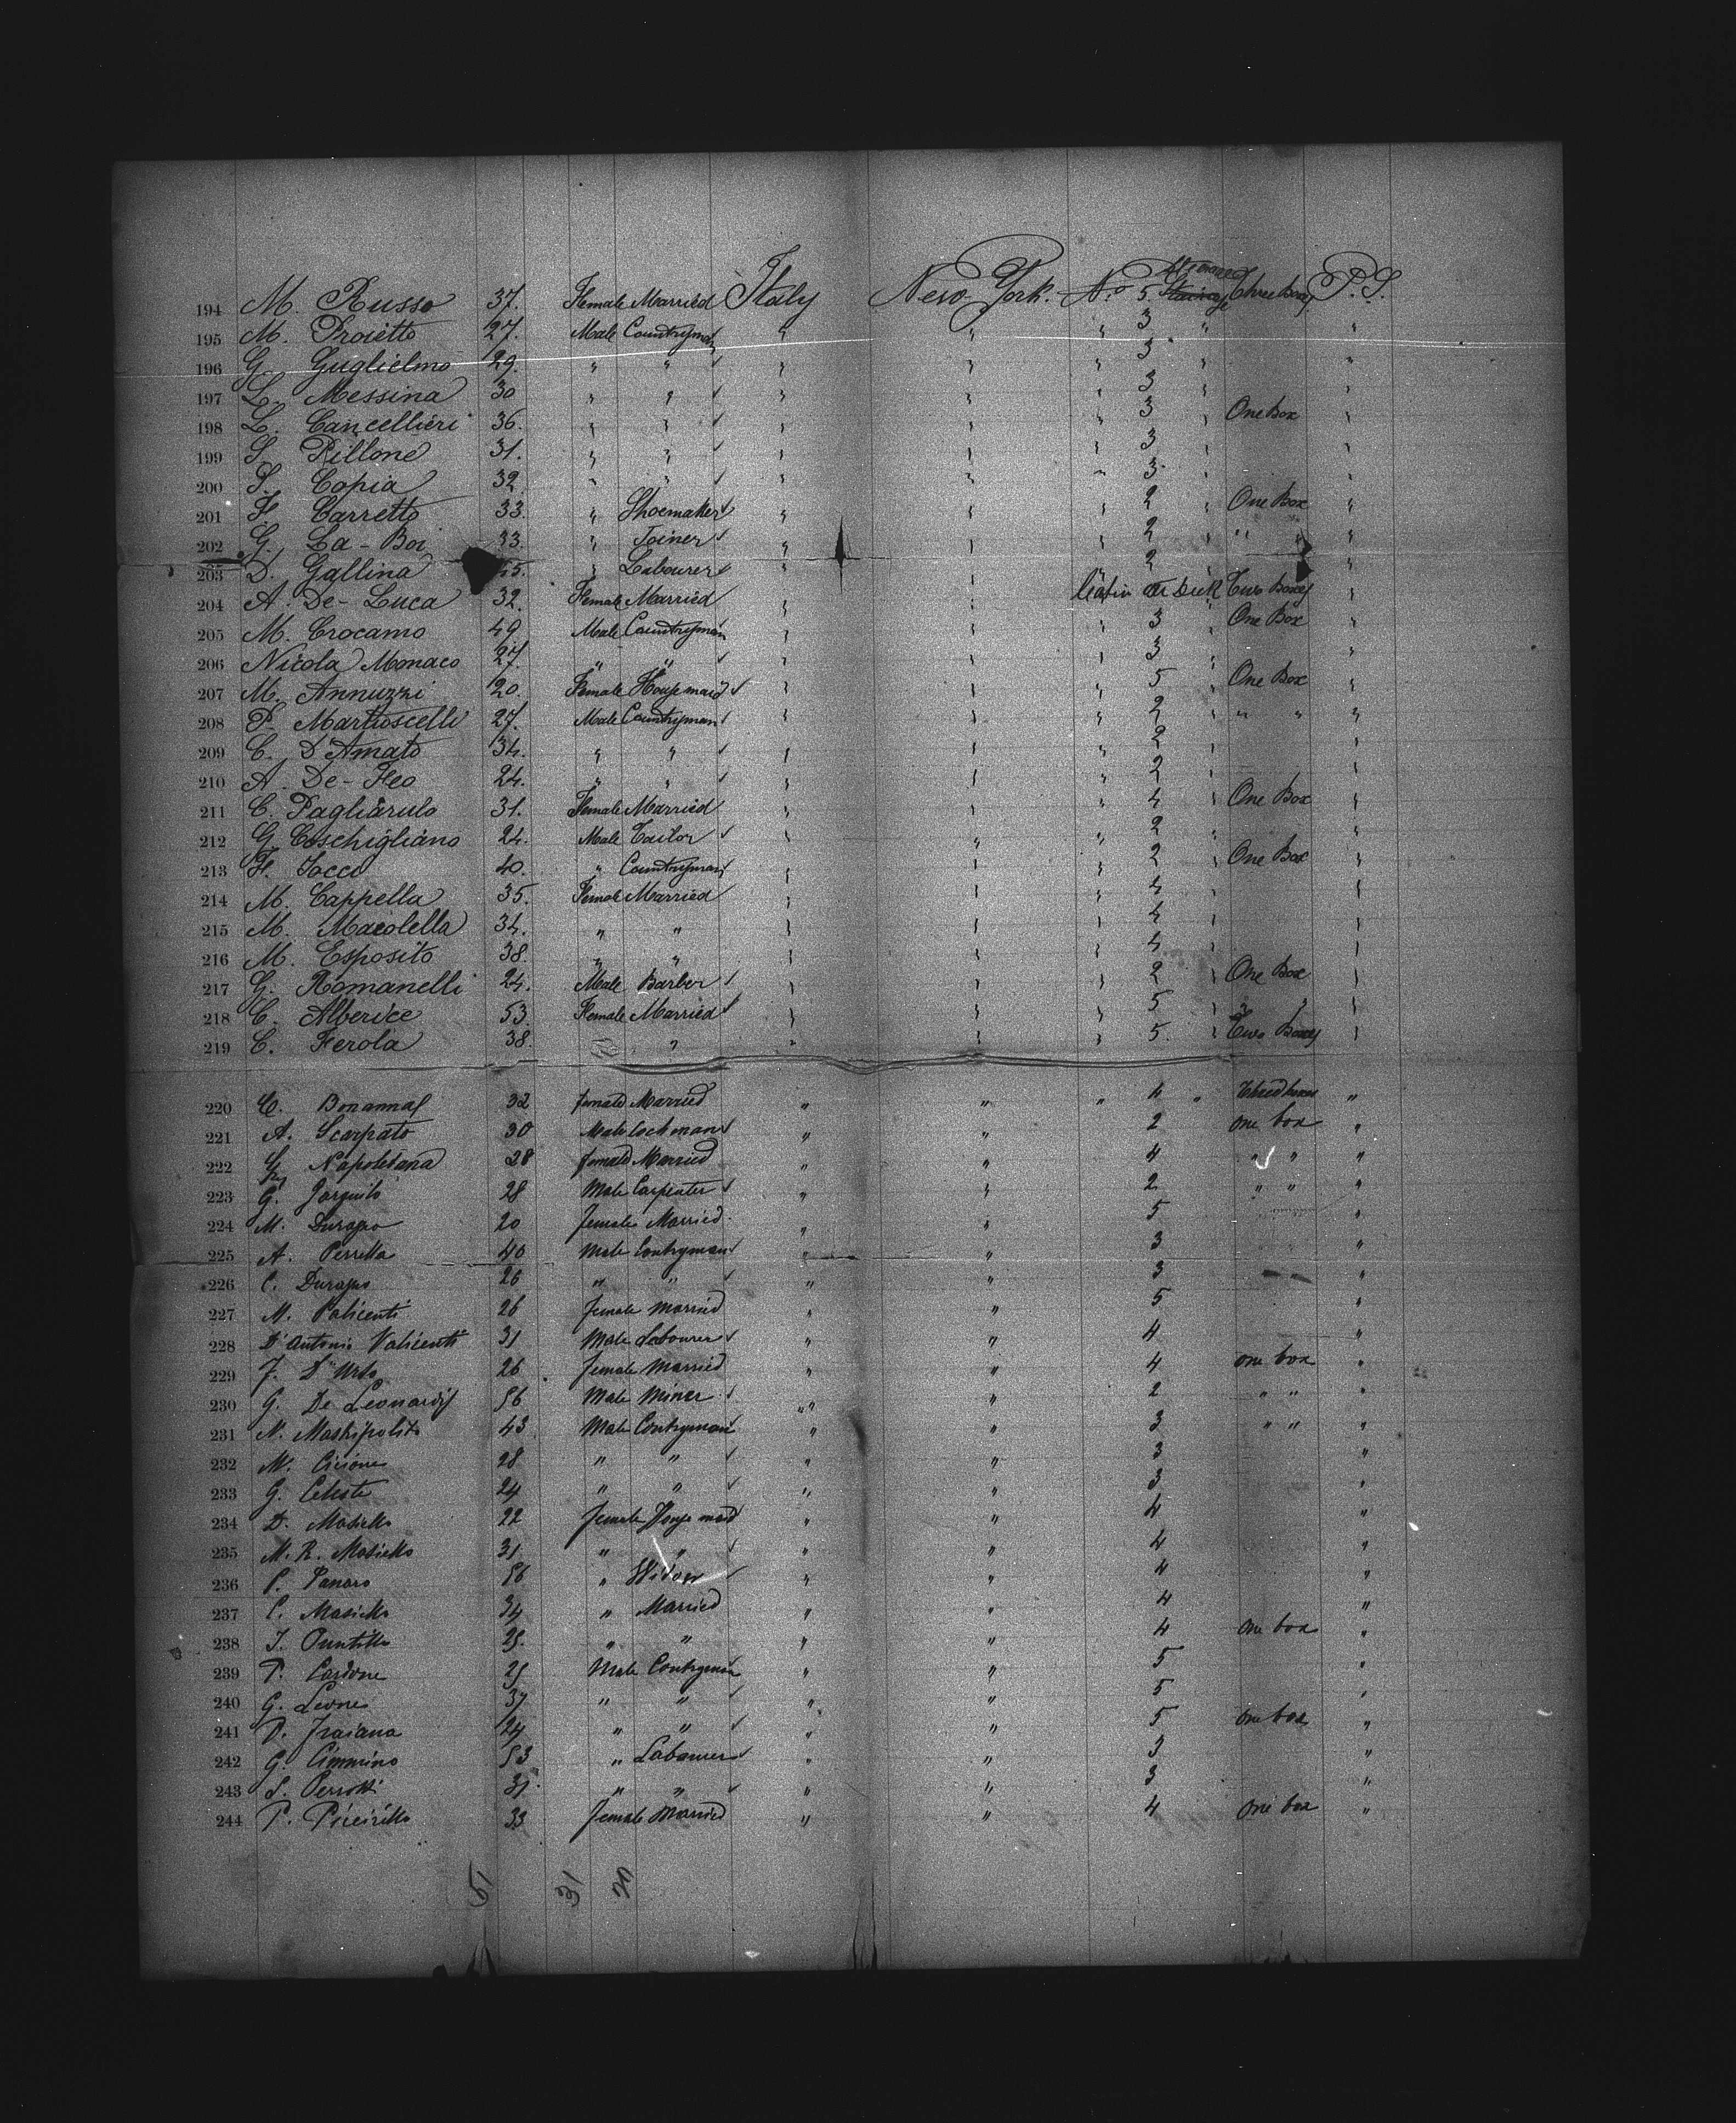 194 M. Russo 37. Female Married Italy New York. No. 5 Three Boxes P.S.
195 M. Proietto 27. Male Countryman " " " 3 " "
196 G. Guglielmo 29. " " " " " 3 " "
197 L. Messina 30 " " " " " 3 " "
198 L. Cancellieri 36. " " " " " 3 " One Box "
199 S. Pillone 31. " " " " " 3 " "
200 S. Copia 32 " " " " " 3 " "
201 F. Carretto 33. " Shoemaker " " " 2 " One Box "
202 G. La-Boi 33. " Joiner " " " 2 " " " "
203 D. Gallina " Labourer " " " 2 "
204 A. De-Luca 32. Female Married " " Two Boxes "
205 M. Crocamo 49. Male Countryman " " " 3 " One Box "
206 Nicola Monaco 27. " " " " " 3 " "
207 M. Annuzzi 20. Female Housemaid " " " 5 " One Box "
208 P. Martioscelli 27. Male Countryman " " " 2 " " " "
209 C. D'Amato 34. " " " " " 2 " "
210 A. De-Feo 24. " " " " " 2 " "
211 C. Pagliarulo 31. Female Married " " " 4 " One Box "
212 G. Coschigliano 24. Male Tailor " " " 2 " "
213 F. Iocco 40. " Countryman " " " 2 " One Box "
214 M. Cappella 35. Female Married " " " 4 " "
215 M. Maiolella 34. " " " " " 4 " "
216 M. Esposito 38. " " " " " 4 " "
217 G. Romanelli 24. Male Barber " " " 2 " One Box "
218 C. Alberice 53. Female Married " " " 5 " " " "
219 C. Ferola 38. " " " " 5. " Two Boxes "
220 C. Bonannas 32 female Married " " " 4 " Three boxes "
221 A. Scarpato 30 Male Cochman " " 2 one box "
222 G. Napoletana 28 female Married " " 4 " " "
223 G. 28 Male Carpenter " " 2 " " "
224 M. Durazzo 20 female Married. " " 5 "
225 A. Perrella 40 Male Contryman " " 3 "
226 C. 26 " " " " 3 "
227 M. Valicenti 26 female married " " 5 "
228 D'Antonio Valicenti 31 Male Labourer " " 4 "
229 F. D'Urso 26 female Married " " 4 one box "
230 G. De Leonardis 56 Male Miner " " 2 " " "
231 N. Mastripolito 43 Male Contryman " " 3 " " "
232 M. Cicione 28 " " " " 3 "
233 G. Celeste 24 " " " " 3 "
234 D. Masiello 22 female House maid " " 4 "
235 M. R. Masiello 31 " " " " 4 "
236 P. Panaro 56 " Widow " " 4 "
237 C. Masiello 34 " Married " " 4 "
238 I. Puntillo 25. " " " " 4 one box "
239 P. Cardone 25 Male Contryman " " 5 "
240 G. Leone 37 " " " " 5 "
241 D. Traiana 24 " " " " 5 one box "
242 G. Cimmino 53 " Labourer " " 3 "
243 S. Perrotti 31. " " " " 3 "
244 P. 33 female Married " " 4 one box "
51 31 20